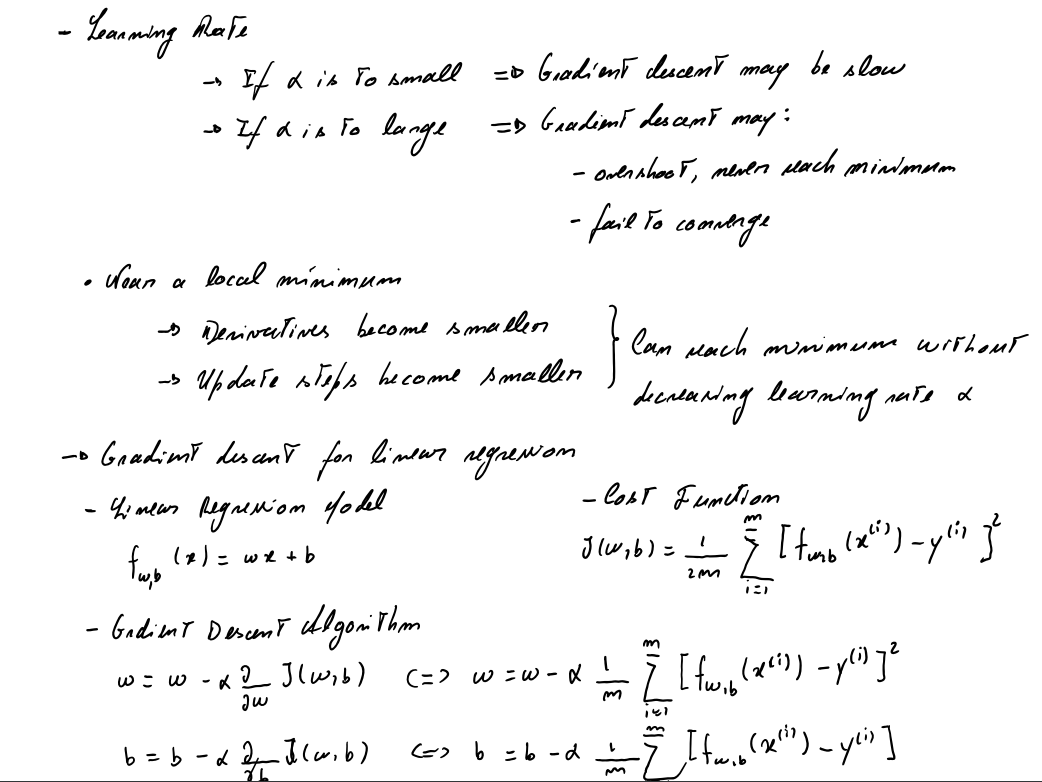 - Learning Rate
→ If α is to small => Gradient descent may be slow
→ If α is to large => Gradient descent may:
- overshoot, never reach minimum
- fail to converge
• Near a local minimum
→ Derivatives become smaller
→ Update steps become smaller } Can reach minimum without
decreasing learning rate α
→ Gradient descent for linear regression
- Linear Regression Model
f_{w,b} (x) = wx + b
- Cost Function
J(w,b) = 1/2m Σ_{i=1}^{m} [f_{w,b} (x^{(i)}) - y^{(i)}]^2
- Gradient Descent Algorithm
w = w - α ∂/∂w J(w,b) <=> w = w - α 1/m Σ_{i=1}^{m} [f_{w,b} (x^{(i)}) - y^{(i)}]^2
b = b - α ∂/∂b J(w,b) <=> b = b - α 1/m Σ^{m} [f_{w,b} (x^{(i)}) - y^{(i)}]